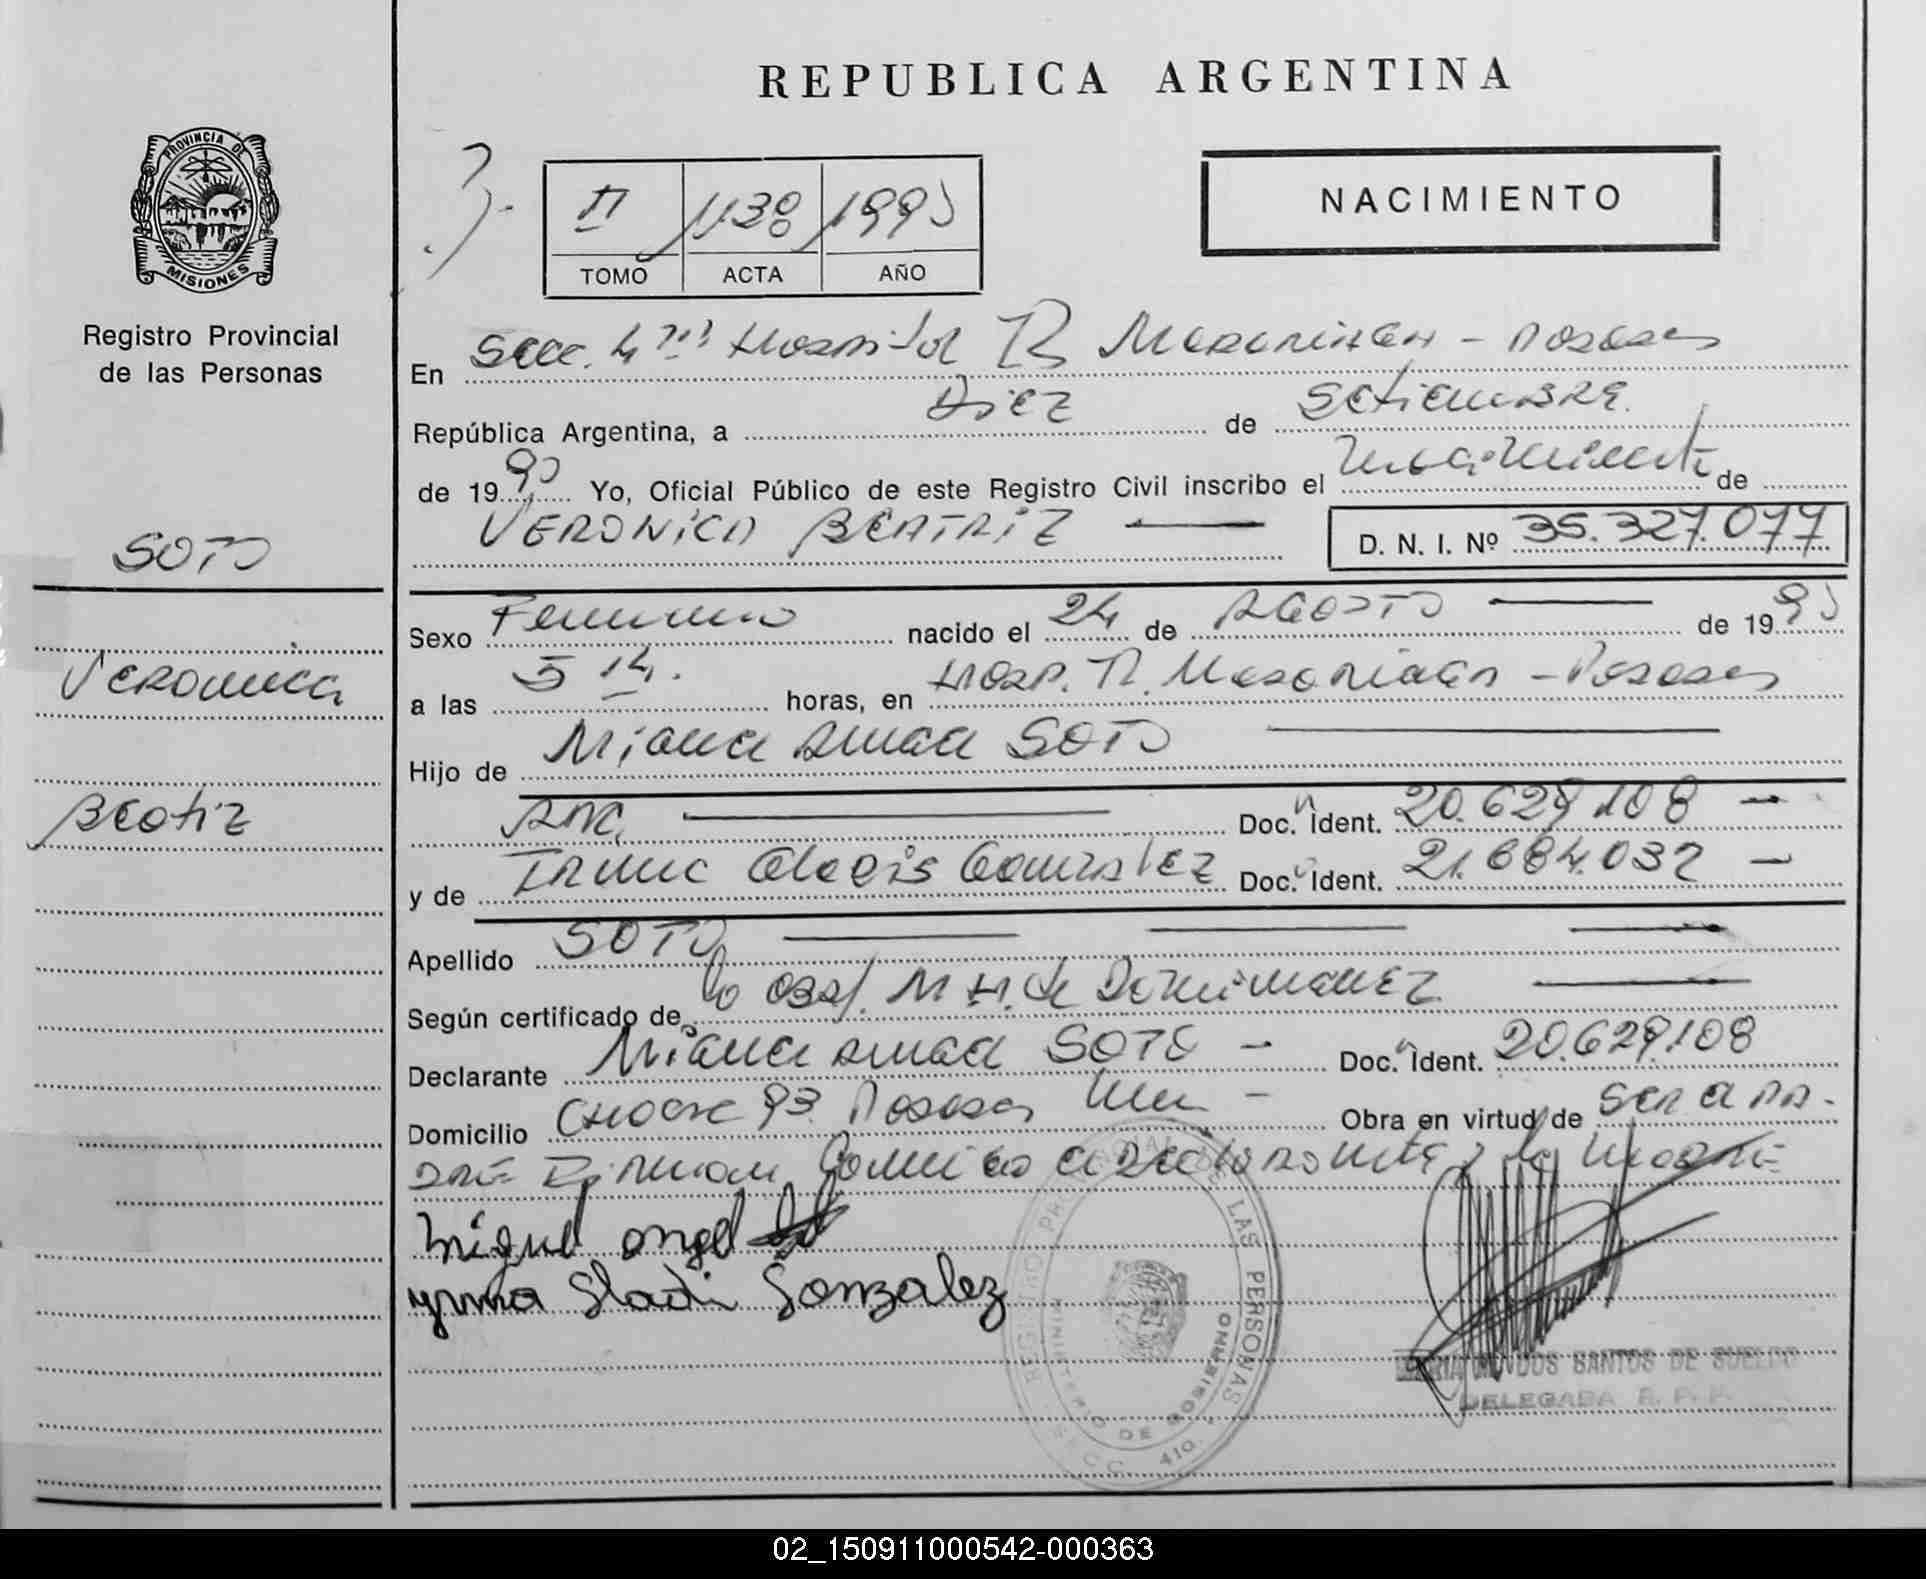 REPUBLICA ARGENTINA
PROVINCIA DE
MISIONES
Registro Provincial
de las Personas
NACIMIENTO
II 1130 1990
TOMO ACTA AÑO
En Secc. 4ta Hospital R Madariaga - Posadas
República Argentina, a Diez de Setiembre
de 1990 Yo, Oficial Público de este Registro Civil inscribo el Nacimiento de
VERONICA BEATRIZ D. N. I. Nº 35.327.077
SOTO
Veronica
Beatriz
Sexo Femenino nacido el 24 de AGOSTO de 1990
a las 5 14. horas, en Hosp. R. Madariaga - Posadas
Hijo de Miguel Angel SOTO
ARG. Doc. Ident. 20.629.108
y de Irma Gladis Gonzalez Doc. Ident. 21.684.032
Apellido SOTO
Según certificado de la Obst. M H. de Dominguez
Declarante Miguel Angel SOTO - Doc. Ident. 20.629.108
Domicilio 93 Posadas Mnes - Obra en virtud de ser el pa-
dre Firman Conmigo el declarante y la madre
Miguel angel
yrma Gladi Gonzalez
REGISTRO PROVINCIAL DE LAS PERSONAS
MINISTERIO DE GOBIERNO
SECC. 4ta.
DOS SANTOS DE SUELDO
DELEGADA R. P. P.
02_150911000542-000363